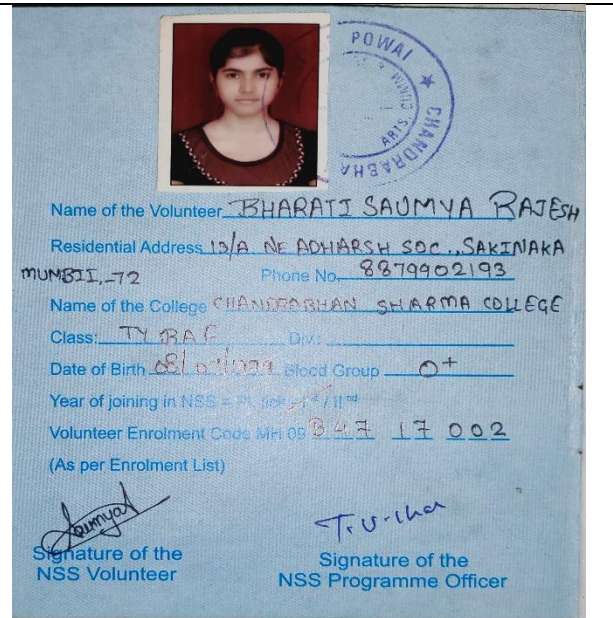 POWAI ★ CHANDRABHA
ARTS,
Name of the Volunteer BHARATI SAUMYA RAJESH
Residential Address 13/A NE ADHARSH SOC., SAKINAKA
MUMBII,-72 Phone No. 8879902193
Name of the College CHANDRABHAN SHARMA COLLEGE
Class: TY BAF Div.:
Date of Birth 08/ /1999 Blood Group O+
Year of joining in NSS = Pl. tick - Ist / IInd
Volunteer Enrolment Code MH 09 B47 17 002
(As per Enrolment List)
Saumya
Signature of the
NSS Volunteer
Signature of the
NSS Programme Officer